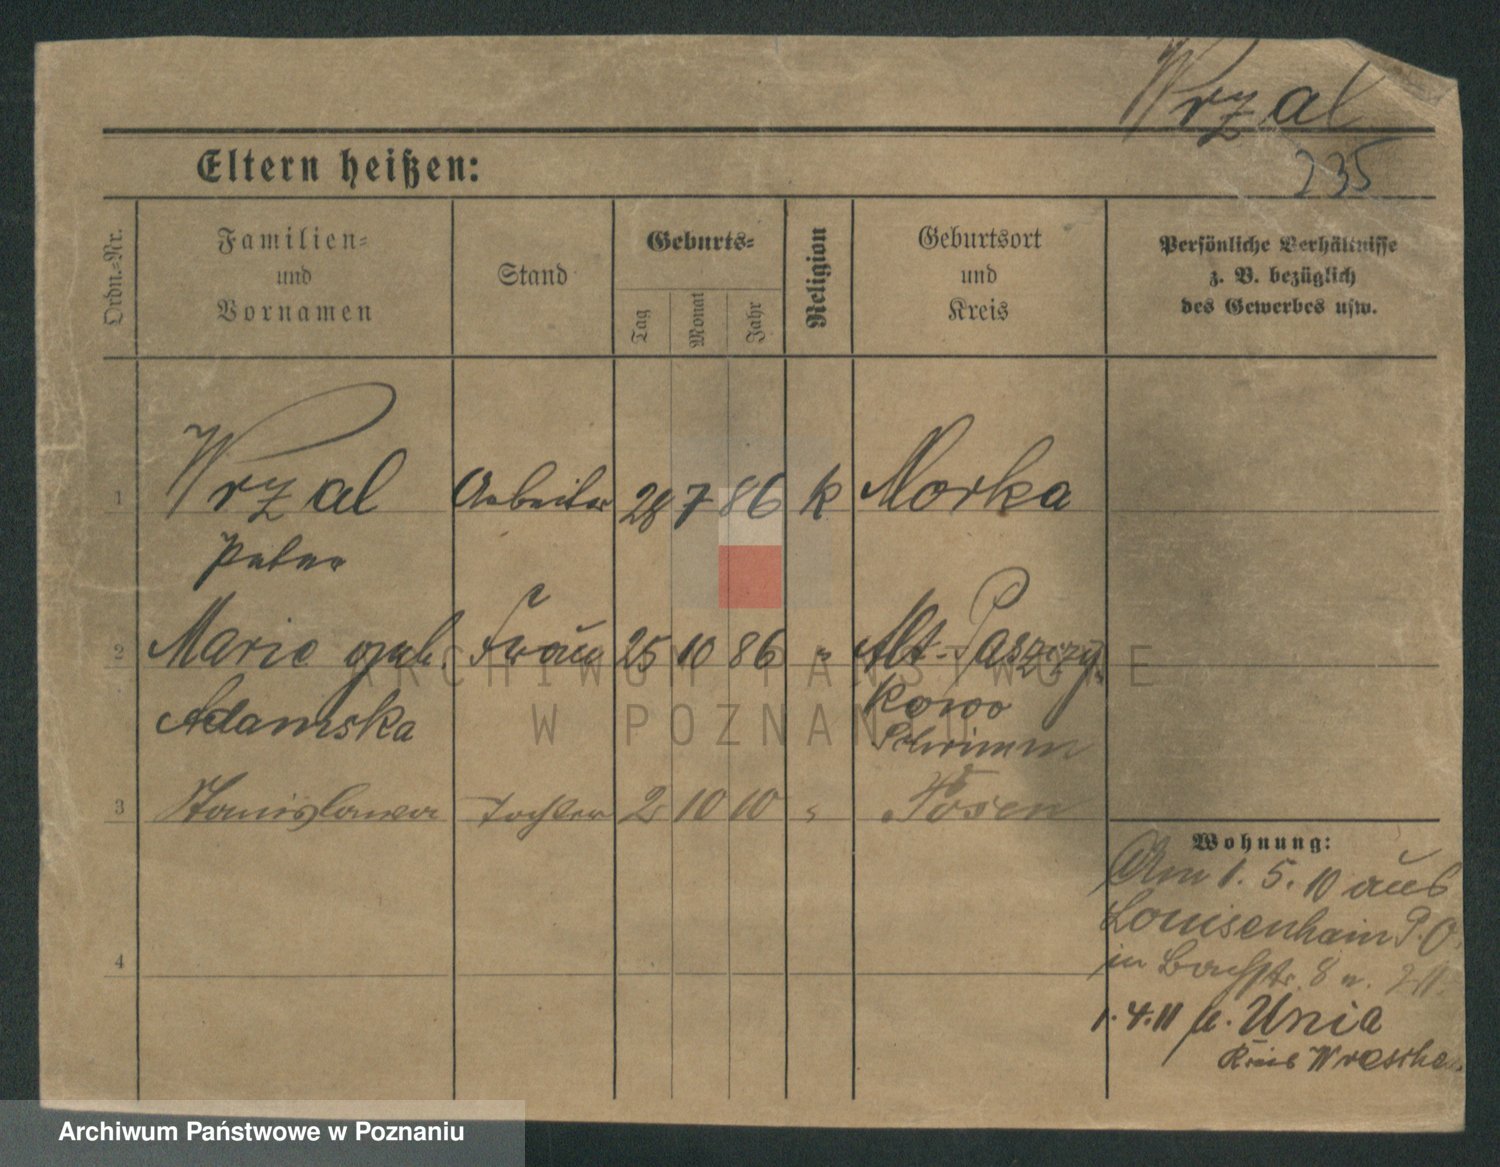 Wrzal
Eltern heißen:
235
Ordn.-Nr.
Familien-
und
Vornamen
Stand
Geburts-
Tag
Monat
Jahr
Religion
Geburtsort
und
Kreis
Persönliche Verhältnisse
z. B. bezüglich
des Gewerbes usw.
1 Wrzal Arbeiter 28 7 86 k Morka
Peter
2 Marie geb. Frau 25 10 86 " Alt-Paszczy-
Adamska kowo
Schrimm
3 Stanislawa Tochter 2 10 10 " Posen
Wohnung:
Am 1. 5. 10 aus
Louisenhain P. O.
in Bachstr. 8
4
1. 4. 11 n. Unia
Kreis Wreschen
ARCHIWUM PAŃSTWOWE
W POZNANIU
Archiwum Państwowe w Poznaniu